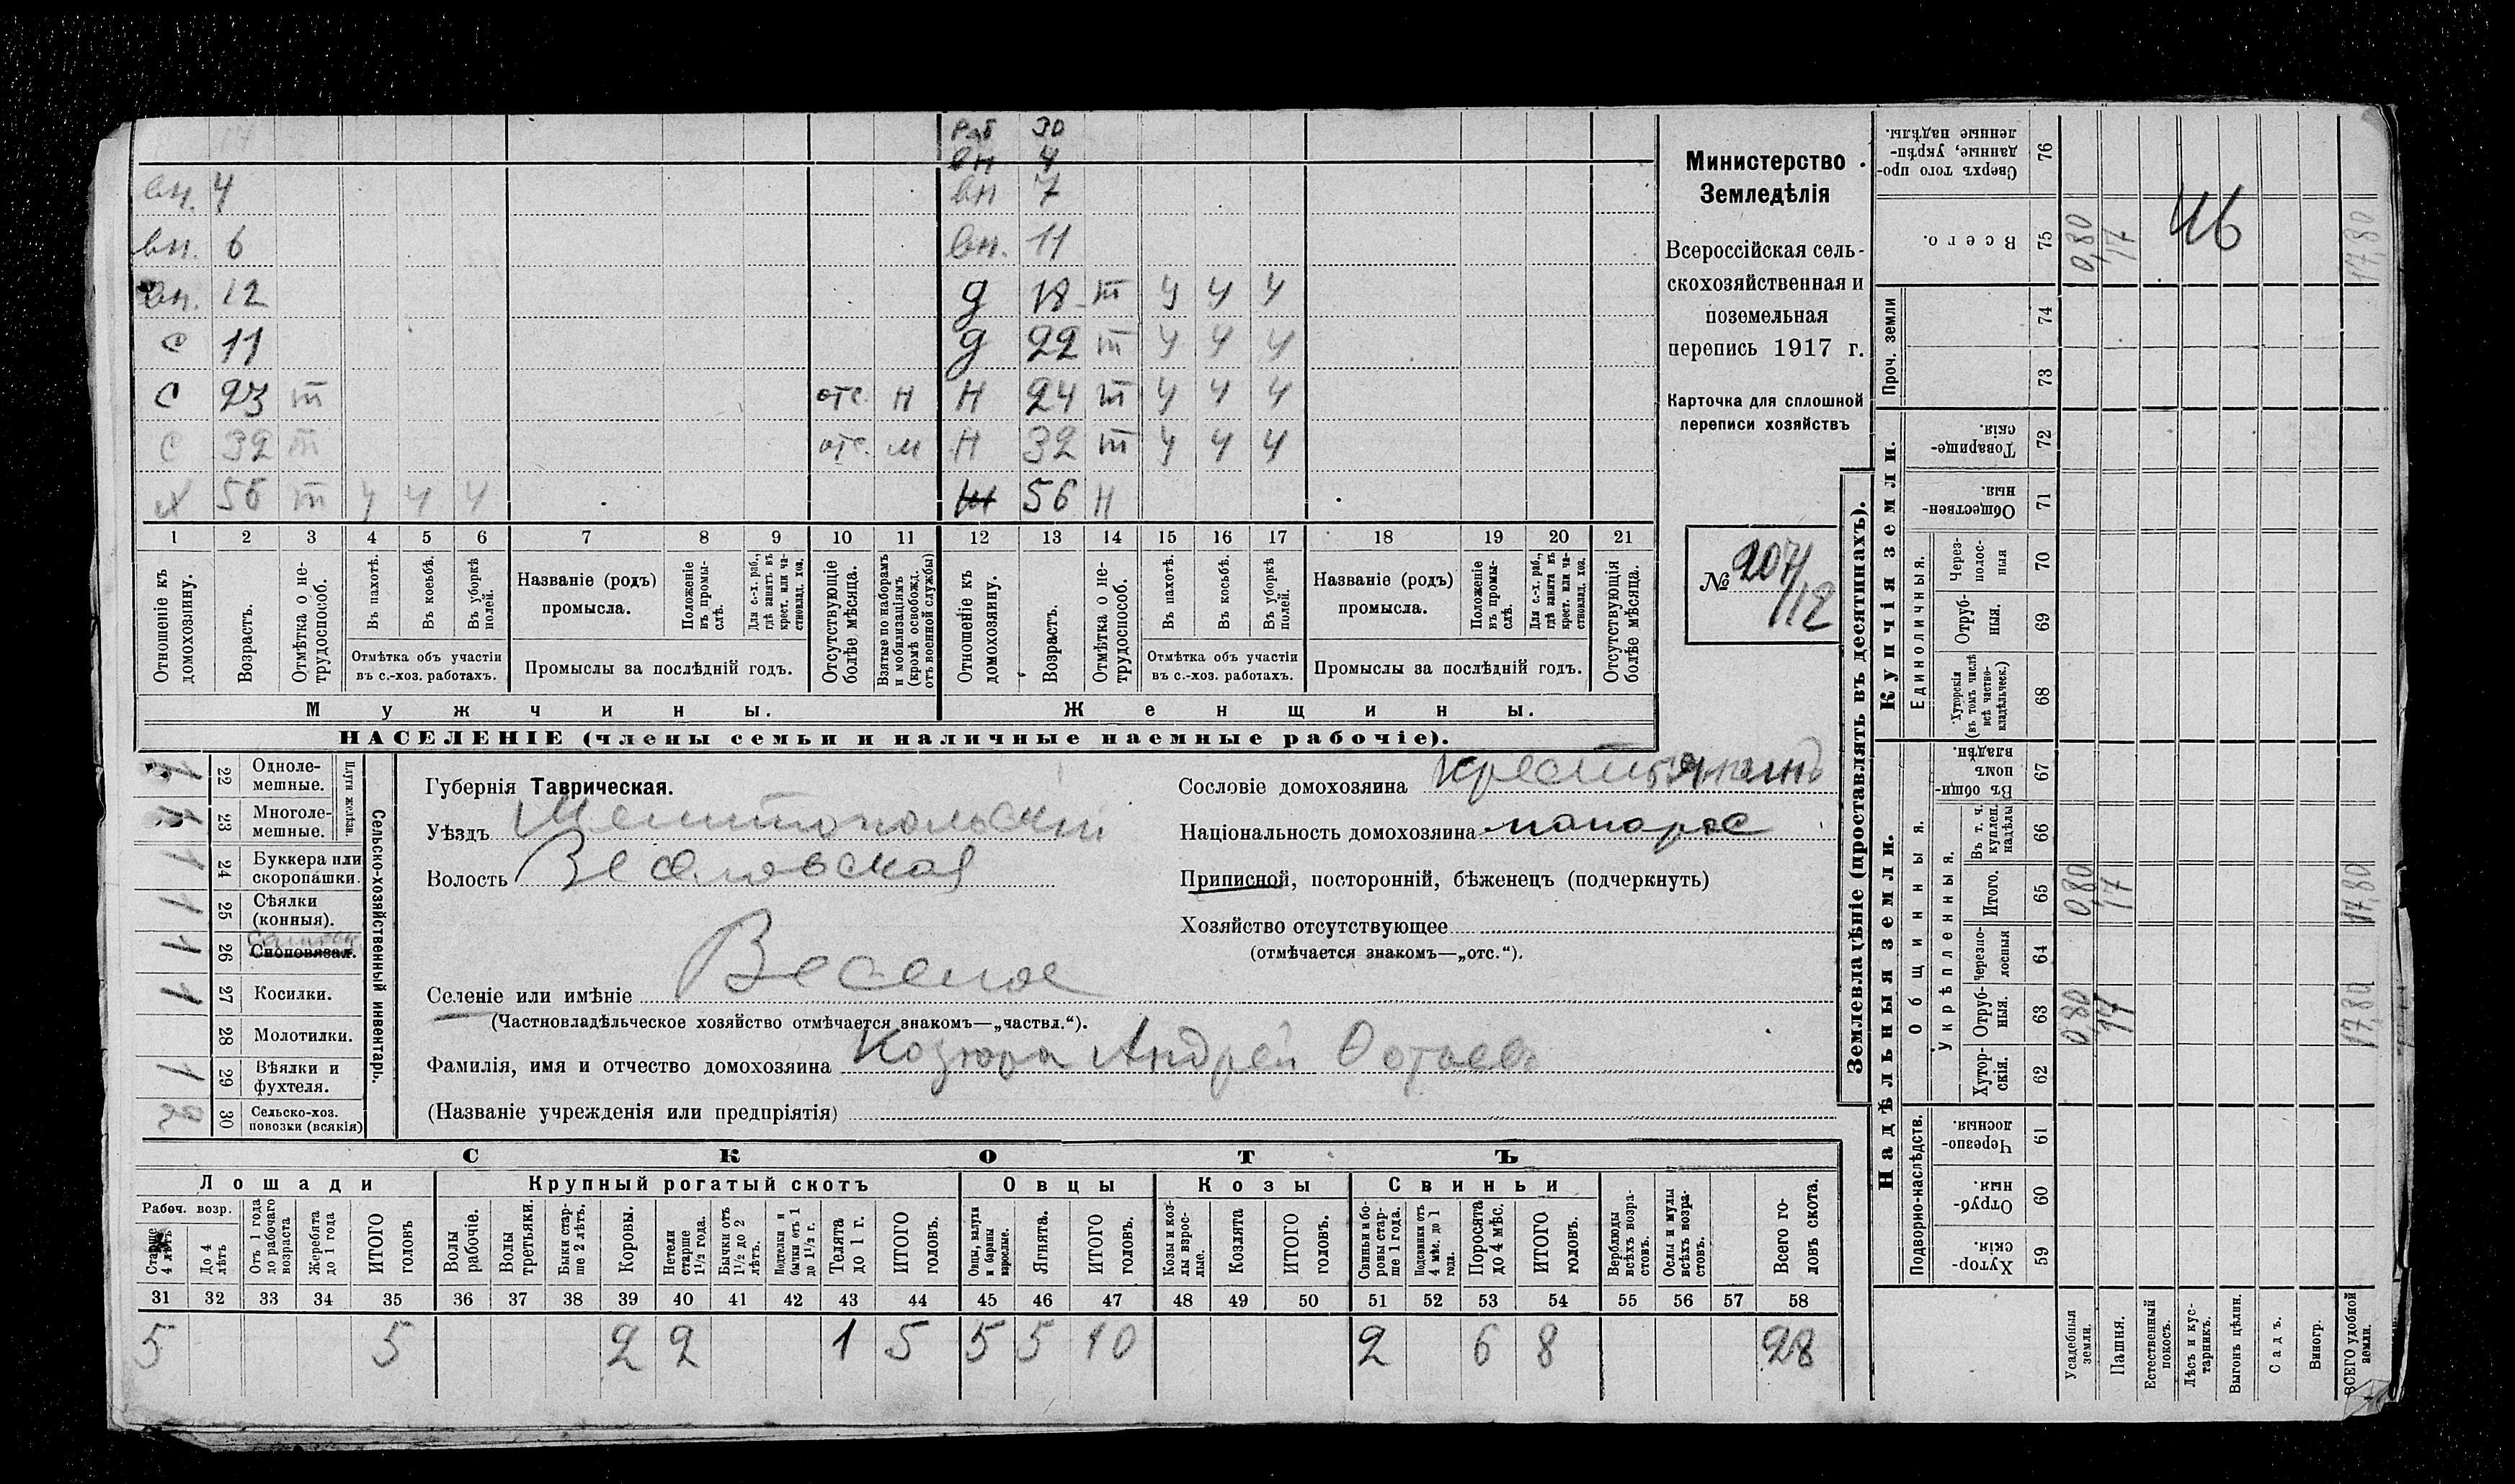 Раб 30
вн 4
вн. 4 вн 7
вн. 6 вн. 11
вн. 12 д 18 т ч ч ч
с 11 д 22 т ч ч ч
с 23 т отс. н Н 24 т ч ч ч
с 32 т отс. м Н 32 т ч ч ч
х 56 т ч ч ч 56 н
1 2 3 4 5 6 7 8 9 10 11 12 13 14 15 16 17 18 19 20 21
Отношеніе къ домохозяину.
Возрастъ.
Отмѣтка о не-трудоспособ.
Въ пахотѣ.
Въ косьбѣ.
Въ уборкѣ полей.
Отмѣтка объ участіи въ с.-хоз. работахъ.
Названіе (родъ) промысла.
Положеніе въ промы-слѣ.
Для с.-х. раб., гдѣ занятъ въ крест. или ча-стновлад. хоз.
Промыслы за послѣдній годъ.
Отсутствующіе болѣе мѣсяца.
Взятые по наборамъ и мобилизаціямъ (кромѣ освобожд. отъ военной службы)
Отношеніе къ домохозяину.
Возрастъ.
Отмѣтка о не-трудоспособ.
Въ пахотѣ.
Въ косьбѣ.
Въ уборкѣ полей.
Отмѣтка объ участіи въ с.-хоз. работахъ.
Названіе (родъ) промысла.
Положеніе въ промы-слѣ.
Для с.-х. раб., гдѣ занята въ крест. или ча-стновлад. хоз.
Промыслы за послѣдній годъ.
Отсутствующія болѣе мѣсяца.
Мужчины. Женщины.
НАСЕЛЕНІЕ (члены семьи и наличные наемные рабочіе).
Министерство
Земледѣлія
Всероссійская сель-
скохозяйственная и
поземельная
перепись 1917 г.
Карточка для сплошной
переписи хозяйствъ
№ 207/112
22 Одноле-мешные.
23 Многоле-мешные.
Плуги желѣзн.
1 24 Буккера или скоропашки.
1 25 Сѣялки (конныя).
1 26 Сноповязал.
1 27 Косилки.
28 Молотилки.
1 29 Вѣялки и фухтеля.
30 Сельско-хоз. повозки (всякія)
Сельско-хозяйственный инвентарь.
Губернія Таврическая.
Уѣздъ Мелитопольскій
Волость Веселовская
Селеніе или имѣніе Веселое
(Частновладѣльческое хозяйство отмѣчается знакомъ—„частвл.“).
Фамилія, имя и отчество домохозяина Козюра Андрей
(Названіе учрежденія или предпріятія)
Сословіе домохозяина крестьянинъ
Національность домохозяина малорос
Приписной, посторонній, бѣженецъ (подчеркнуть)
Хозяйство отсутствующее
(отмѣчается знакомъ—„отс.“).
СКОТЪ
Лошади Крупный рогатый скотъ Овцы Козы Свиньи
Рабоч. возр.
Старше 4 лѣтъ
До 4 лѣтъ
Отъ 1 года до рабочаго возраста
Жеребята до 1 года
ИТОГО головъ
Волы рабочіе.
Волы третьяки.
Быки стар-ше 2 лѣтъ.
Коровы.
Нетели старше 1½ года.
Бычки отъ 1½ до 2 лѣтъ.
Подтелки и бычки отъ 1 до 1½ г.
Телята до 1 г.
ИТОГО головъ.
Овцы, валухи и бараны взрослые.
Ягнята.
ИТОГО головъ.
Козы и коз-лы взрос-лые.
Козлята
ИТОГО головъ.
Свиньи и бо-ровы стар-ше 1 года.
Подсвинки отъ 4 мѣс. до 1 года.
Поросята до 4 мѣс.
ИТОГО головъ.
Верблюды всѣхъ возра-стовъ.
Ослы и мулы всѣхъ возра-стовъ.
Всего го-ловъ скота.
31 32 33 34 35 36 37 38 39 40 41 42 43 44 45 46 47 48 49 50 51 52 53 54 55 56 57 58
5 5 2 2 1 5 5 5 10 2 6 8 28
Землевладѣніе (проставлять въ десятинахъ).
Купчія земли.
Надѣльныя земли.
Сверхъ того про-данные, укрѣп-ленные надѣлы. 76
Всего. 75 0,80 17 46 17,80
Проч. земли 74
73
Товарище-скія. 72
Обществен-ныя. 71
Единоличныя.
Через-полос-ныя 70
Отруб-ныя. 69
Хуторскія (въ томъ числѣ всѣ частно-владѣльческ.) 68
Общинныя.
Въ общин-номъ владѣн. 67
Укрѣпленныя.
Въ т. ч. куплен. надѣлы 66
Итого. 65 0,80 17 17,80
Черезпо-лосныя 64
Отруб-ныя. 63 0,80 17 17,80
Хутор-скія. 62
Подворно-наслѣдств.
Черезпо-лосныя. 61
Отруб-ныя. 60
Хутор-скія. 59
Усадебныя земли.
Пашня.
Естественный покосъ.
Лѣсъ и кус-тарникъ.
Выгонъ цѣлин.
Садъ.
Виногр.
ВСЕГО удобной земли.